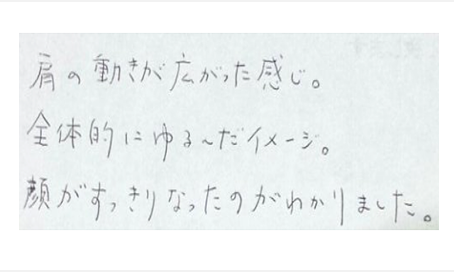 肩の動きが広がった感じ。
全体的にゆる~だイメージ。
顔がすっきりなったのがわかりました。